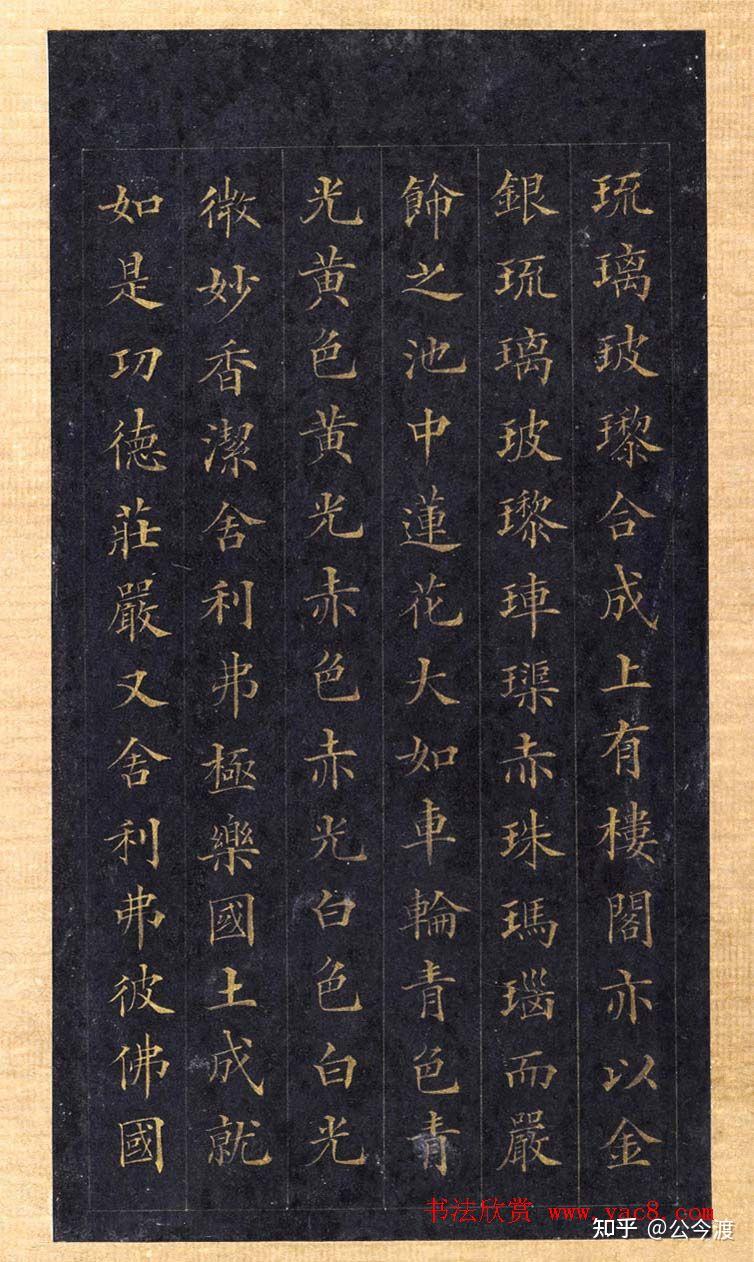 琉璃玻瓈合成上有樓閣亦以金
銀琉璃玻瓈硨磲赤珠瑪瑙而嚴
飾之池中蓮花大如車輪青色青
光黄色黄光赤色赤光白色白光
微妙香潔舍利弗極樂國土成就
如是功德莊嚴又舍利弗彼佛國
书法欣赏 www.yac8.com
知乎 @公今渡